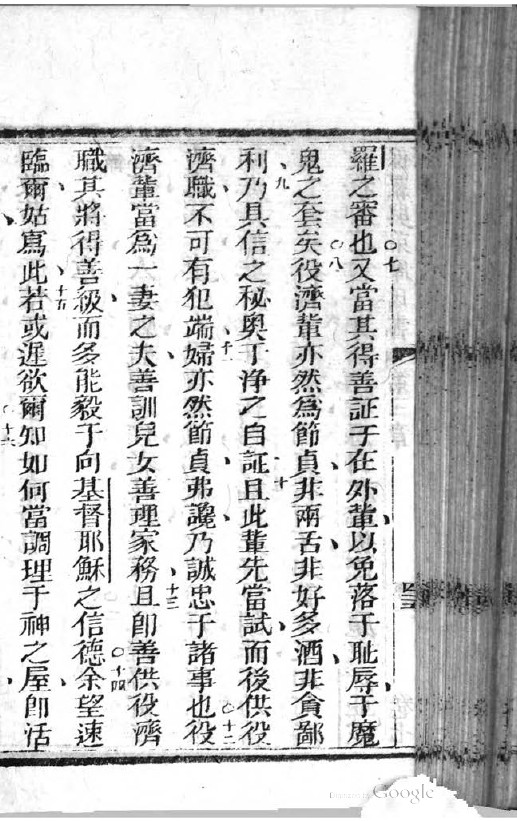 羅之審也○七又當其得善証于在外輩以免落于恥辱于魔
鬼之套矣○八役濟輩亦然為節貞非兩舌非好多酒非貪鄙
利九乃具信之秘奧于淨之自証十且此輩先當試而後供役
濟職不可有犯端十一婦亦然節貞弗讒乃誠忠于諸事也○十二役
濟輩當為一妻之夫善訓兒女善理家務十三且即善供役濟
職其將得善級而多能毅于向基督耶穌之信德○十四余望速
臨爾姑寫此十五若或遲欲爾知如何當調理于神之屋即活
Google